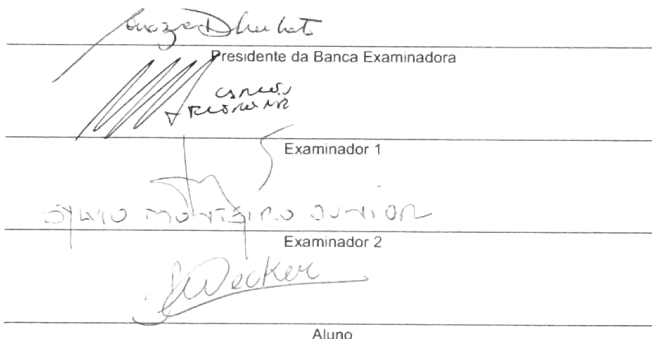 Presidente da Banca Examinadora
Examinador 1
SYLVIO MONTEIRO JUNIOR
Examinador 2
Decker
Aluno